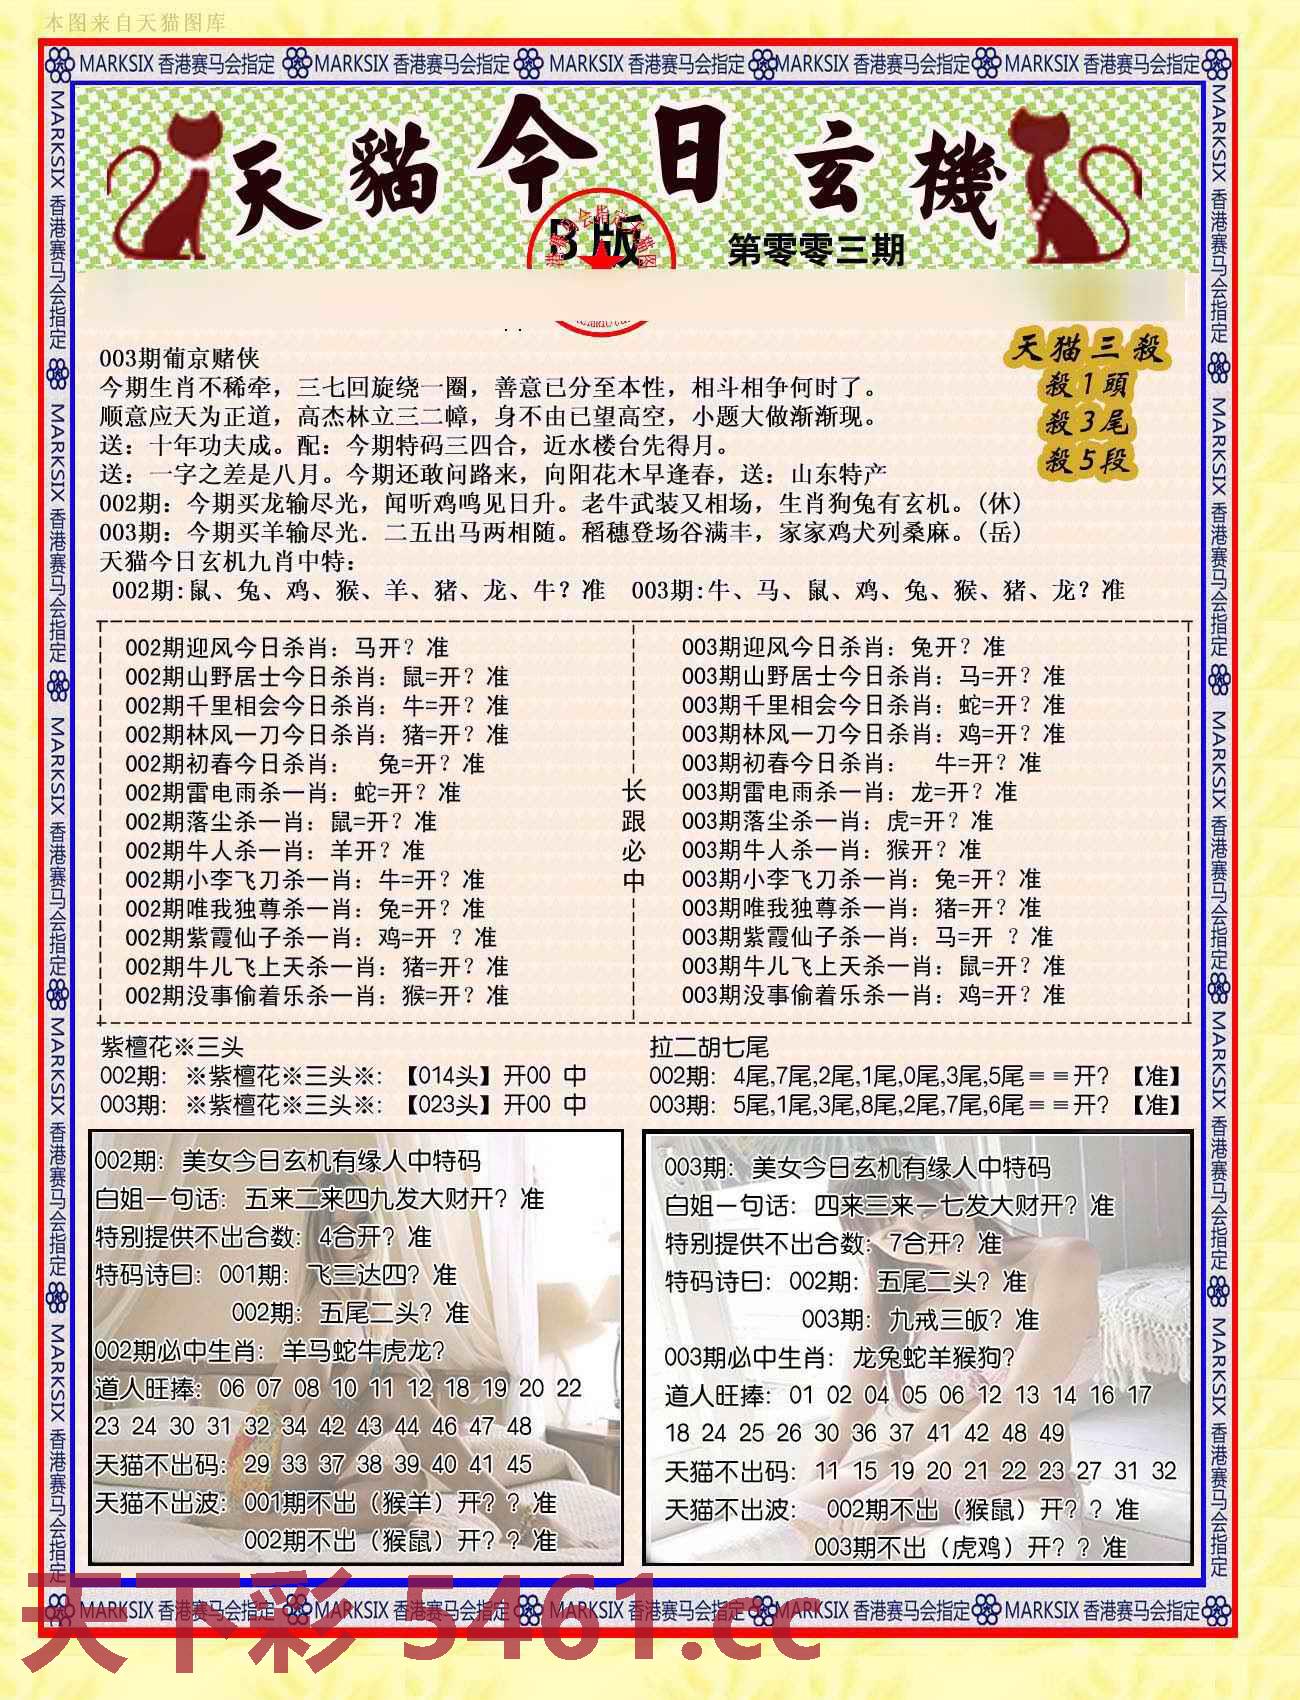 本图来自天猫图库
MARKSIX 香港赛马会指定 MARKSIX 香港赛马会指定 MARKSIX 香港赛马会指定 MARKSIX 香港赛马会指定 MARKSIX 香港赛马会指定
天貓今日玄機
B版
第零零三期
天猫三殺
殺1頭
殺3尾
殺5段
003期葡京赌侠
今期生肖不稀牵，三七回旋绕一圈，善意已分至本性，相斗相争何时了。
顺意应天为正道，高杰林立三二幛，身不由已望高空，小题大做渐渐现。
送：十年功夫成。配：今期特码三四合，近水楼台先得月。
送：一字之差是八月。今期还敢问路来，向阳花木早逢春，送：山东特产
002期：今期买龙输尽光，闻听鸡鸣见日升。老牛武装又相场，生肖狗兔有玄机。(休)
003期：今期买羊输尽光．二五出马两相随。稻穗登场谷满丰，家家鸡犬列桑麻。(岳)
天猫今日玄机九肖中特：
002期:鼠、兔、鸡、猴、羊、猪、龙、牛？准 003期:牛、马、鼠、鸡、兔、猴、猪、龙？准
002期迎风今日杀肖：马开？准
002期山野居士今日杀肖：鼠=开？准
002期千里相会今日杀肖：牛=开？准
002期林风一刀今日杀肖：猪=开？准
002期初春今日杀肖： 兔=开？准
002期雷电雨杀一肖：蛇=开？准
002期落尘杀一肖：鼠=开？准
002期牛人杀一肖：羊开？准
002期小李飞刀杀一肖：牛=开？准
002期唯我独尊杀一肖：兔=开？准
002期紫霞仙子杀一肖：鸡=开 ？准
002期牛儿飞上天杀一肖：猪=开？准
002期没事偷着乐杀一肖：猴=开？准
长跟必中
003期迎风今日杀肖：兔开？准
003期山野居士今日杀肖：马=开？准
003期千里相会今日杀肖：蛇=开？准
003期林风一刀今日杀肖：鸡=开？准
003期初春今日杀肖： 牛=开？准
003期雷电雨杀一肖：龙=开？准
003期落尘杀一肖：虎=开？准
003期牛人杀一肖：猴开？准
003期小李飞刀杀一肖：兔=开？准
003期唯我独尊杀一肖：猪=开？准
003期紫霞仙子杀一肖：马=开 ？准
003期牛儿飞上天杀一肖：鼠=开？准
003期没事偷着乐杀一肖：鸡=开？准
紫檀花※三头
002期：※紫檀花※三头※:【014头】开00 中
003期：※紫檀花※三头※:【023头】开00 中
拉二胡七尾
002期：4尾,7尾,2尾,1尾,0尾,3尾,5尾＝＝开？【准】
003期：5尾,1尾,3尾,8尾,2尾,7尾,6尾＝＝开？【准】
002期：美女今日玄机有缘人中特码
白姐一句话：五来二来四九发大财开？准
特别提供不出合数：4合开？准
特码诗曰：001期：飞三达四？准
002期：五尾二头？准
002期必中生肖：羊马蛇牛虎龙?
道人旺捧：06 07 08 10 11 12 18 19 20 22
23 24 30 31 32 34 42 43 44 46 47 48
天猫不出码：29 33 37 38 39 40 41 45
天猫不出波：001期不出（猴羊）开？？准
002期不出（猴鼠）开？？准
003期：美女今日玄机有缘人中特码
白姐一句话：四来三来一七发大财开？准
特别提供不出合数：7合开？准
特码诗曰：002期：五尾二头？准
003期：九戒三皈？准
003期必中生肖：龙兔蛇羊猴狗?
道人旺捧：01 02 04 05 06 12 13 14 16 17
18 24 25 26 30 36 37 41 42 48 49
天猫不出码：11 15 19 20 21 22 23 27 31 32
天猫不出波： 002期不出（猴鼠）开？？准
003期不出（虎鸡）开？？准
MARKSIX 香港赛马会指定 MARKSIX 香港赛马会指定 MARKSIX 香港赛马会指定 MARKSIX 香港赛马会指定 MARKSIX 香港赛马会指定
MARKSIX 香港赛马会指定 MARKSIX 香港赛马会指定 MARKSIX 香港赛马会指定 MARKSIX 香港赛马会指定 MARKSIX 香港赛马会指定
MARKSIX 香港赛马会指定 MARKSIX 香港赛马会指定 MARKSIX 香港赛马会指定 MARKSIX 香港赛马会指定 MARKSIX 香港赛马会指定
天下彩 5461.cc